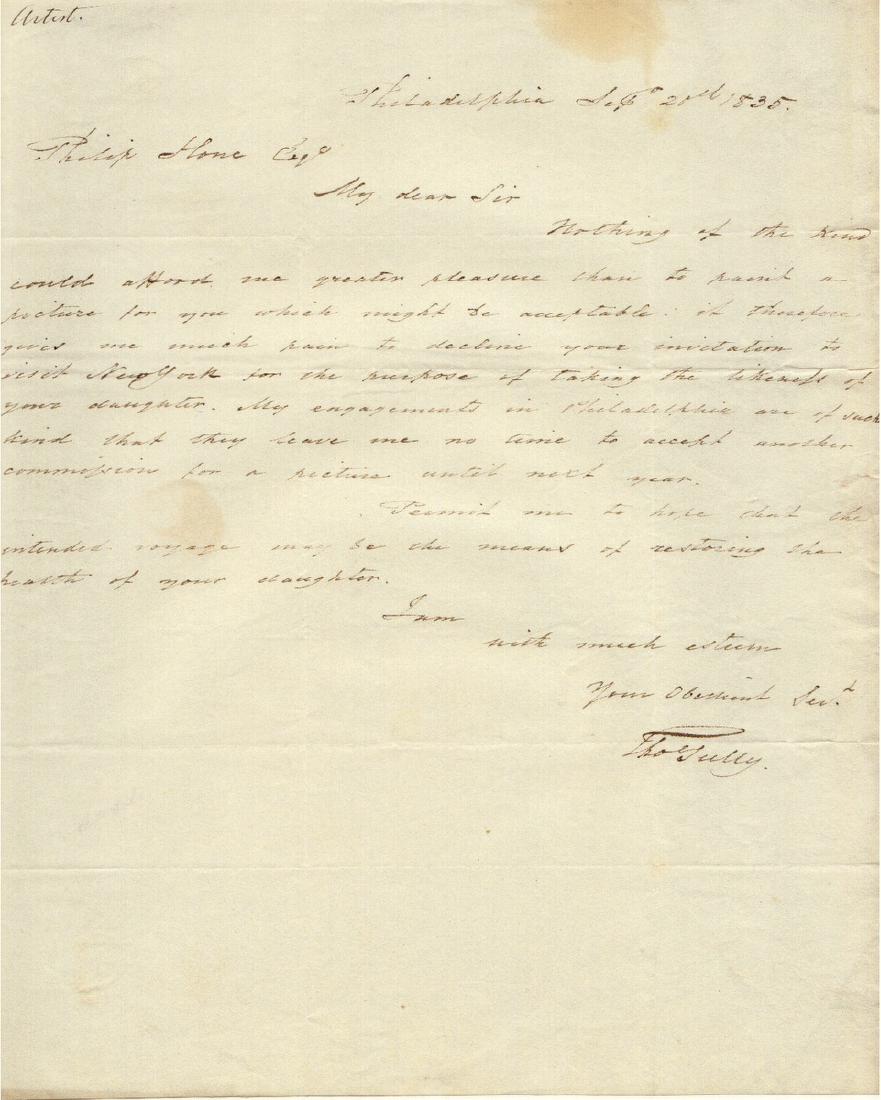 Artist.
Philadelphia Sept 20th 1835.
Philip Hone Esqr
My dear Sir
Nothing of the kind
could afford me greater pleasure than to paint a
picture for you which might be acceptable: it therefore
gives me much pain to decline your invitation to
visit New York for the purpose of taking the likeness of
your daughter. My engagements in Philadelphia are of such
kind that they leave me no time to accept another
commission for a picture until next year.
Permit me to hope that the
intended voyage may be the means of restoring the
health of your daughter.
I am
with much esteem
Your Obedient Servt
Thos Sully.